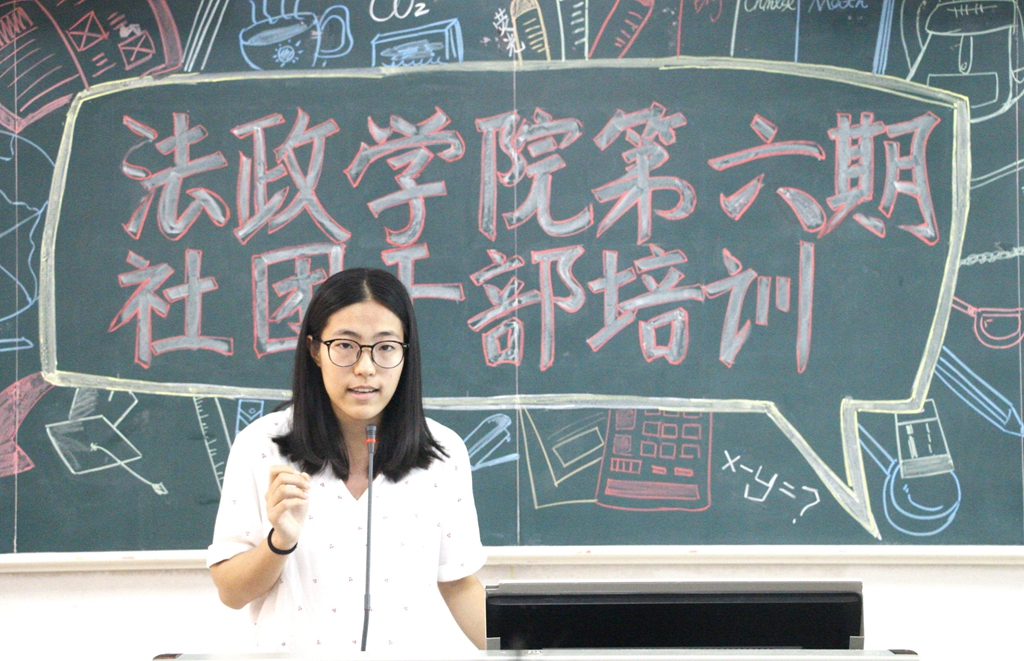 CO₂
Chinese
Math
法政学院第六期
社团干部培训
x-y=?